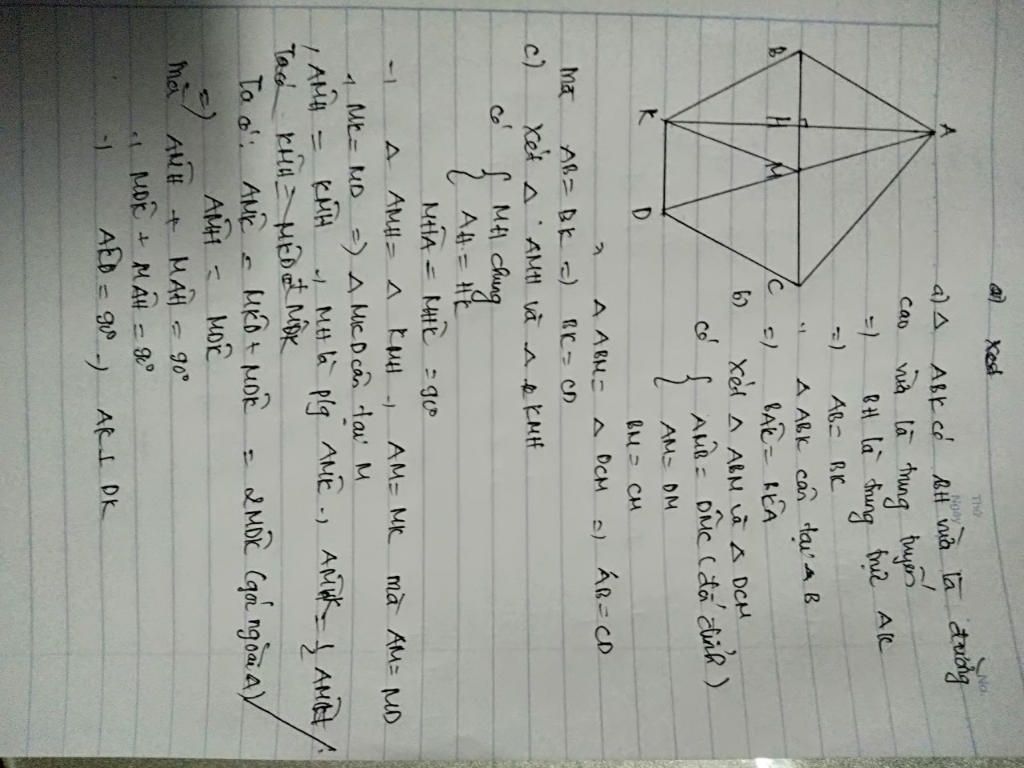 Thứ
Ngày
No.
a) Xét
A
B
H
M
C
K
D
a) Δ ABK có BH vừa là đường
cao vừa là trung tuyến
=) BH là trung trực AK
=) AB = BK
-) Δ ABK cân tại B
=) BÂK = BK̂A
b) Xét Δ ABM và Δ DCM
có { AM̂B = DM̂C (đối đỉnh)
AM = DM
BM = CM
-) Δ ABM = Δ DCM =) AB = CD
mà AB = BK =) BK = CD
c) Xét Δ AMH và Δ KMH
có { MH chung
AH = HK
MĤA = MĤK = 90°
-) Δ AMH = Δ KMH -) AM = MK mà AM = MD
-) MK = MD =) Δ MKD cân tại M
AM̂H = KM̂H -) MH là p/g AM̂K -)
Ta có
Ta có: AM̂K = MK̂D + MD̂K = 2MD̂K (góc ngoài Δ)
=) AM̂H = MD̂K
mà AM̂H + MÂH = 90°
-) MD̂K + MÂH = 90°
-) AK̂D = 90° -) AK ⊥ DK